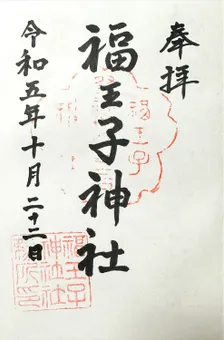 奉拝
福王子神社
令和五年十月二十二日
福王子
神社社
務所印